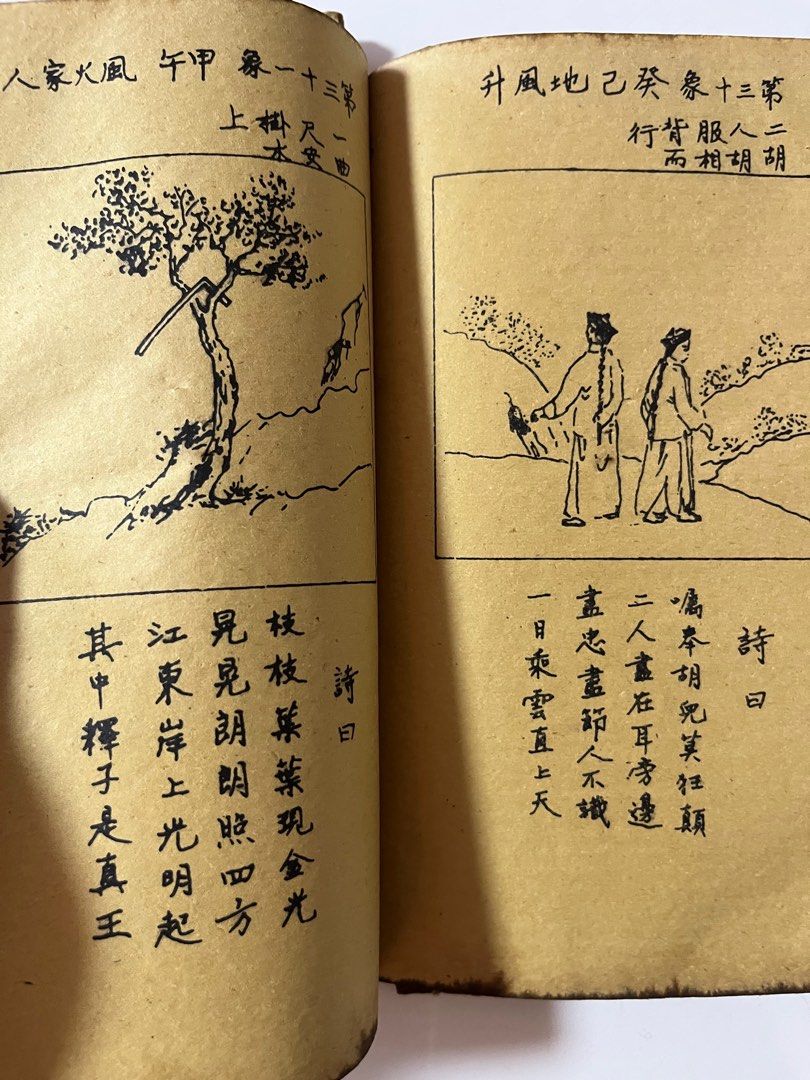 第三十象癸己地風升
二胡人胡服相背而行
詩曰
囑奉胡兒莫狂顛
二人盡在耳旁邊
盡忠盡節人不識
一日乘雲直上天
第三十一象 甲午 風火家人
一曲尺安掛木上
詩曰
枝枝葉葉現金光
晃晃朗朗照四方
江東岸上光明起
其中釋子是真王